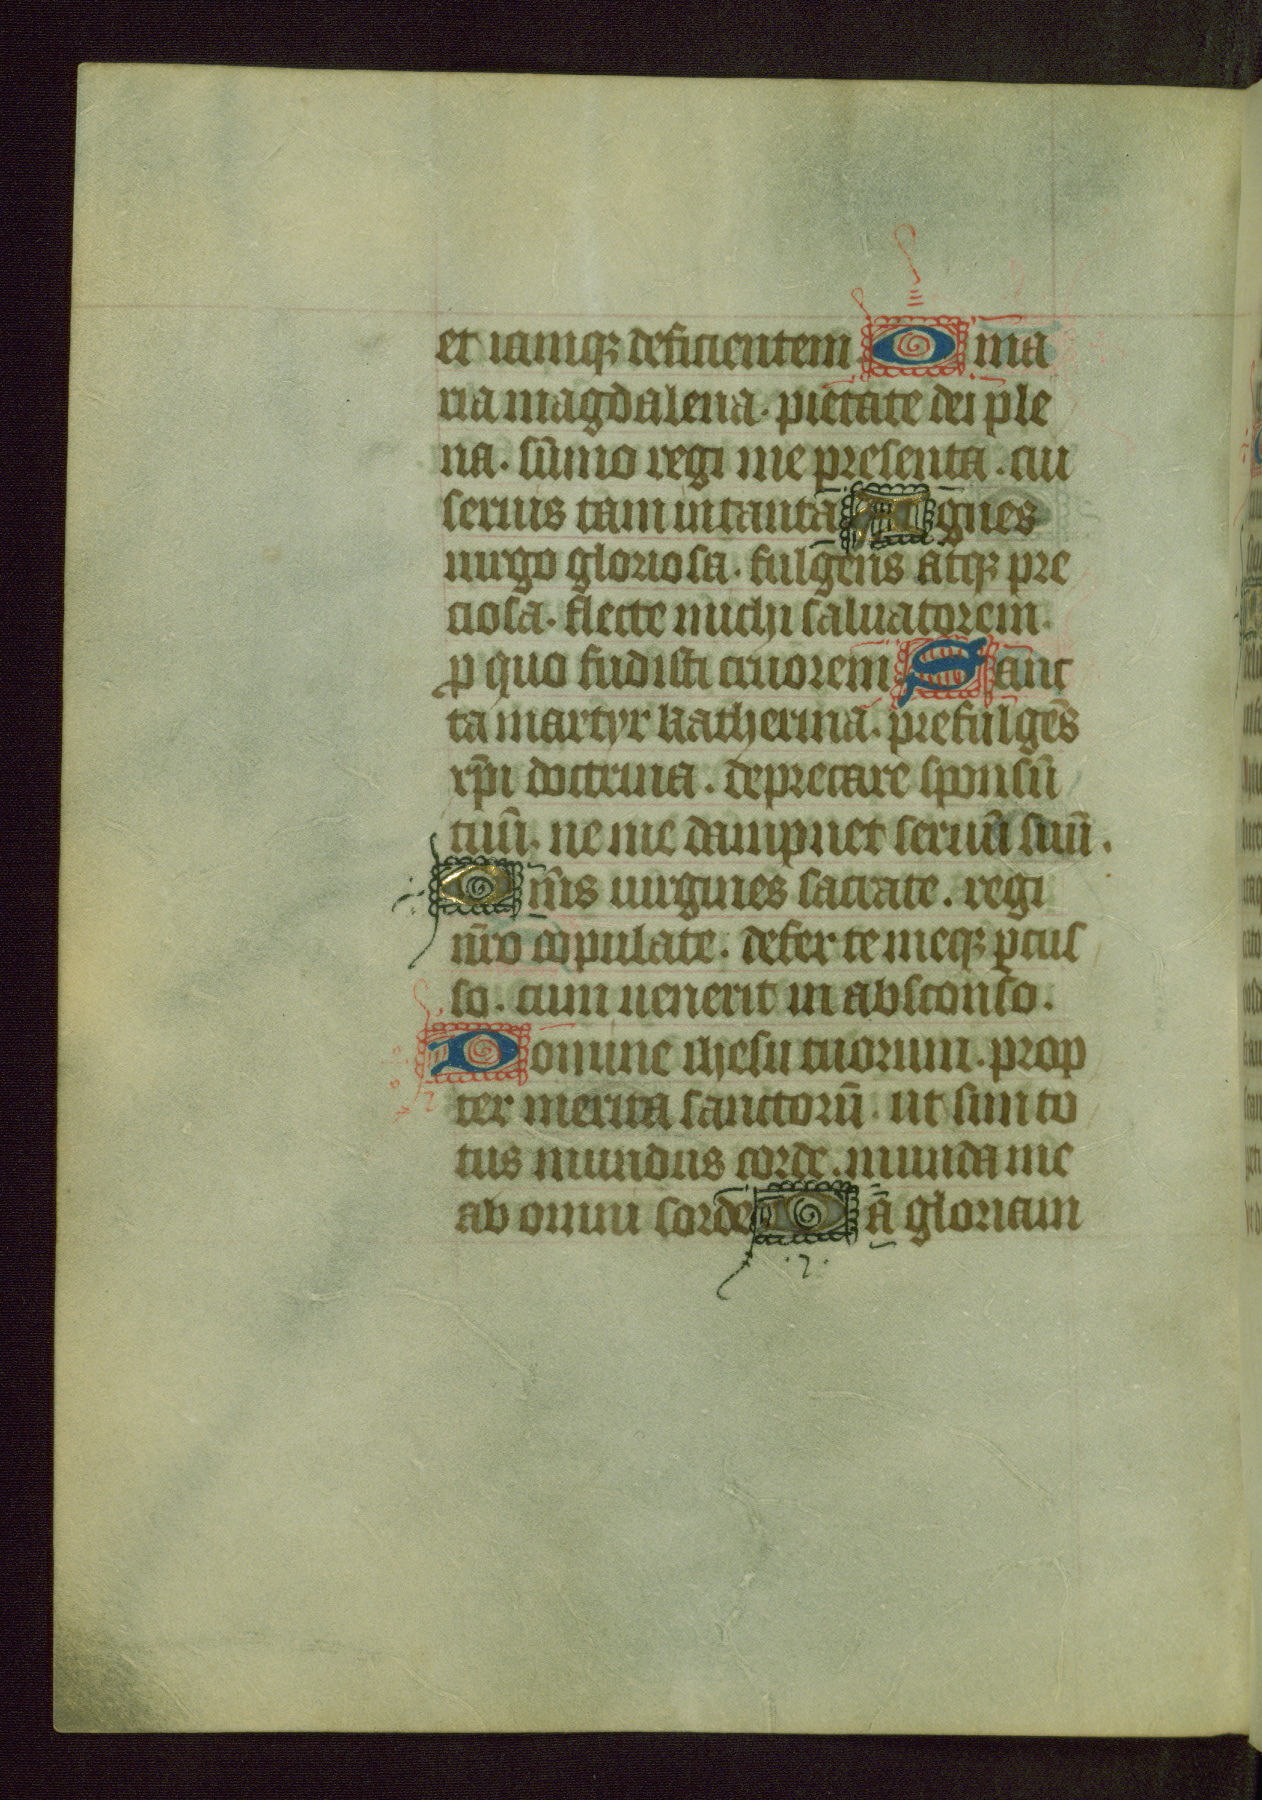 et iamqꝫ deficientem O ma
ria magdalena. pietate dei ple
na. sūmo regi me presenta. cui
seruis tam intanta Agnes
uirgo gloriosa. fulgens atqꝫ pre
ciosa. flecte michi saluatorem.
ꝑ quo fudisti cruorem Sanc
ta martyr katherina. prefulgēs
xp̄i doctrina. deprecare sponsū
tuū. ne me dampnet seruū suū.
Om̄s uirgines sacrate. regi
nr̄o copulate. defer te meqꝫ ꝑcus
so. cum uenerit in absconso.
Domine ihesu tuorum. prop
ter merita sanctorū. ut sim to
tus mundus corde. munda me
ab omni sorde Da gloriam